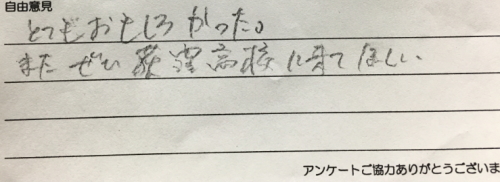 自由意見
とてもおもしろかった。
またぜひ荻窪高校に来てほしい
アンケートご協力ありがとうございま